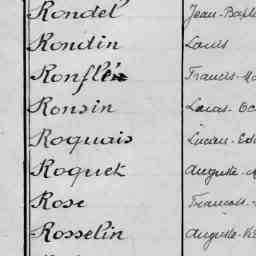 Rondel Jean-Bap
Rondin Louis
Ronflé
Ronsin Louis-
Roquais Lucien-Ed
Roquet Auguste-
Rose François-
Rosselin Auguste-